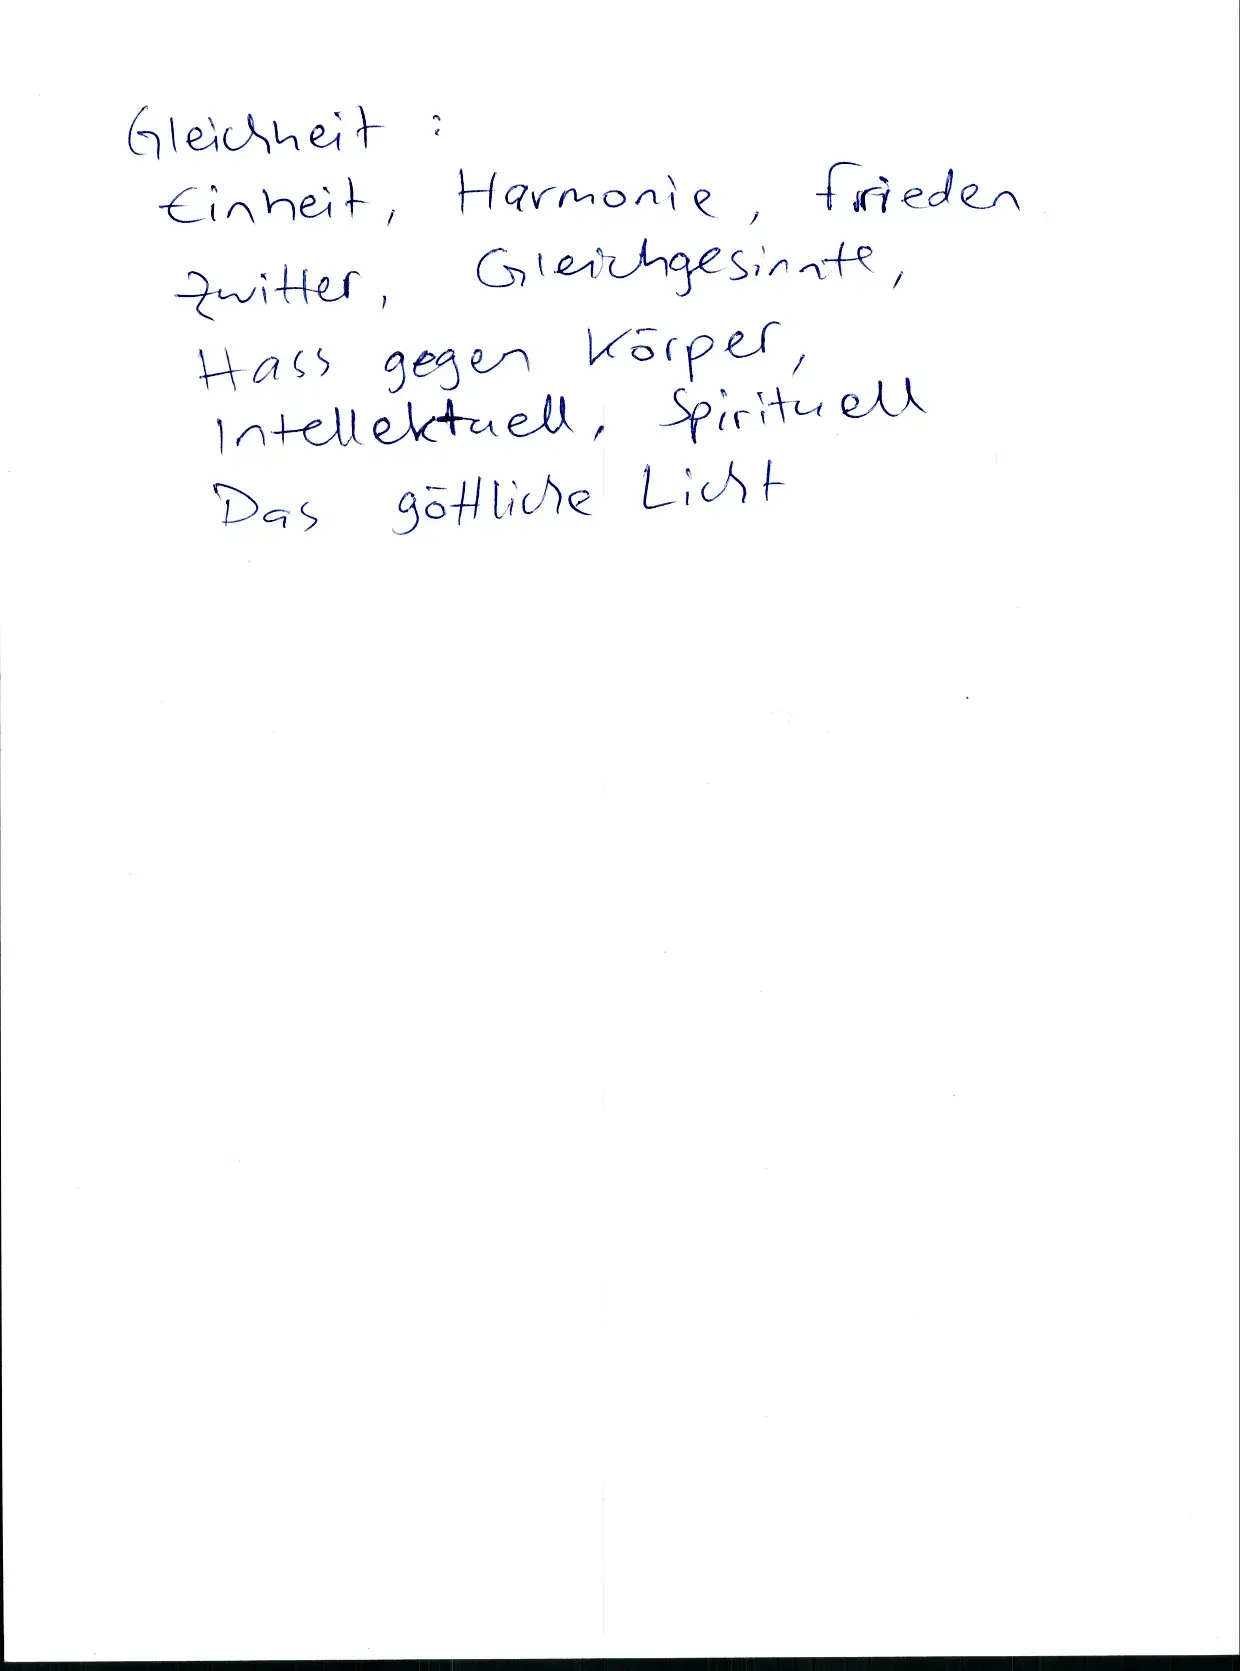 Gleichheit :
Einheit, Harmonie, Frieden
Zwitter, Gleichgesinnte,
Hass gegen Körper,
Intellektuell, Spirituell
Das göttliche Licht